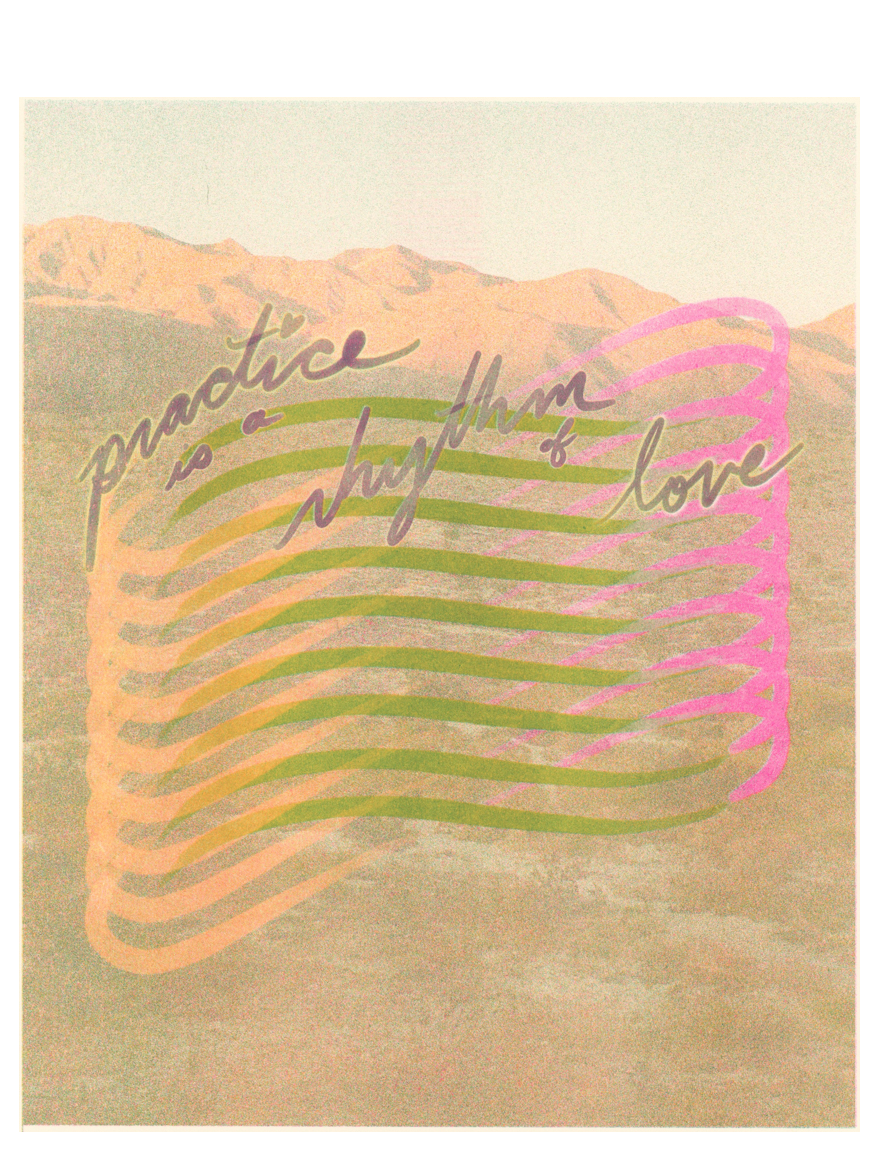 practice
is a
rhythm
of
love